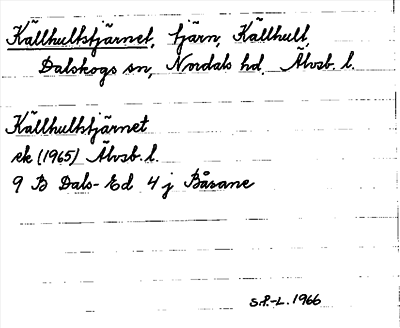 Källhultstjärnet, tjärn, Källhult
Dalskogs sn, Nordals hd. Älvsb. l.
Källhultstjärnet
ek (1965) Älvsb. l.
9 B Dals-Ed 4 j Båsane
S.P.-L. 1966